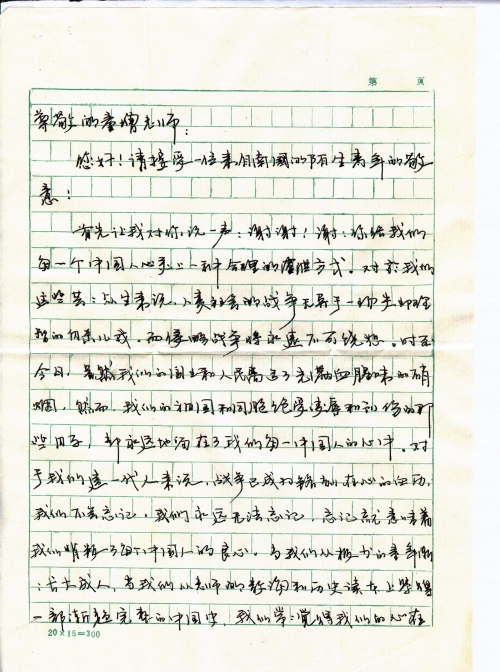 第 页
尊敬的童增老师：
您好！请接受一位来自南国的陌生青年的敬
意！
首先让我对你说一声：谢谢！谢谢你给我们
每一个中国人心灵上一种合理的 方式。对于我们
这些芸芸众生来说，人类社会的战争无异于一场失却理
智的 儿戏，而侵略战争将永远不可饶恕。时至
今日，虽然我们的国土和人民离远了充满血腥味的硝
烟，然而，我们的祖国和同胞绝受凌辱和刲伤的那
些日子，却永远地活在了我们每一中国人的心中。对
于我们这一代人来说，战争已成为铭刻在心的 历，
我们不会忘记，我们永远无法忘记，忘记就意味着
我们背叛了每个中国人的良心。当我们从 书的青年渐
渐长大成人，当我们从老师的教诲和历史读本上学得
一部渐趋完整的中国史，我们常常觉得我们的心在
20×15=300